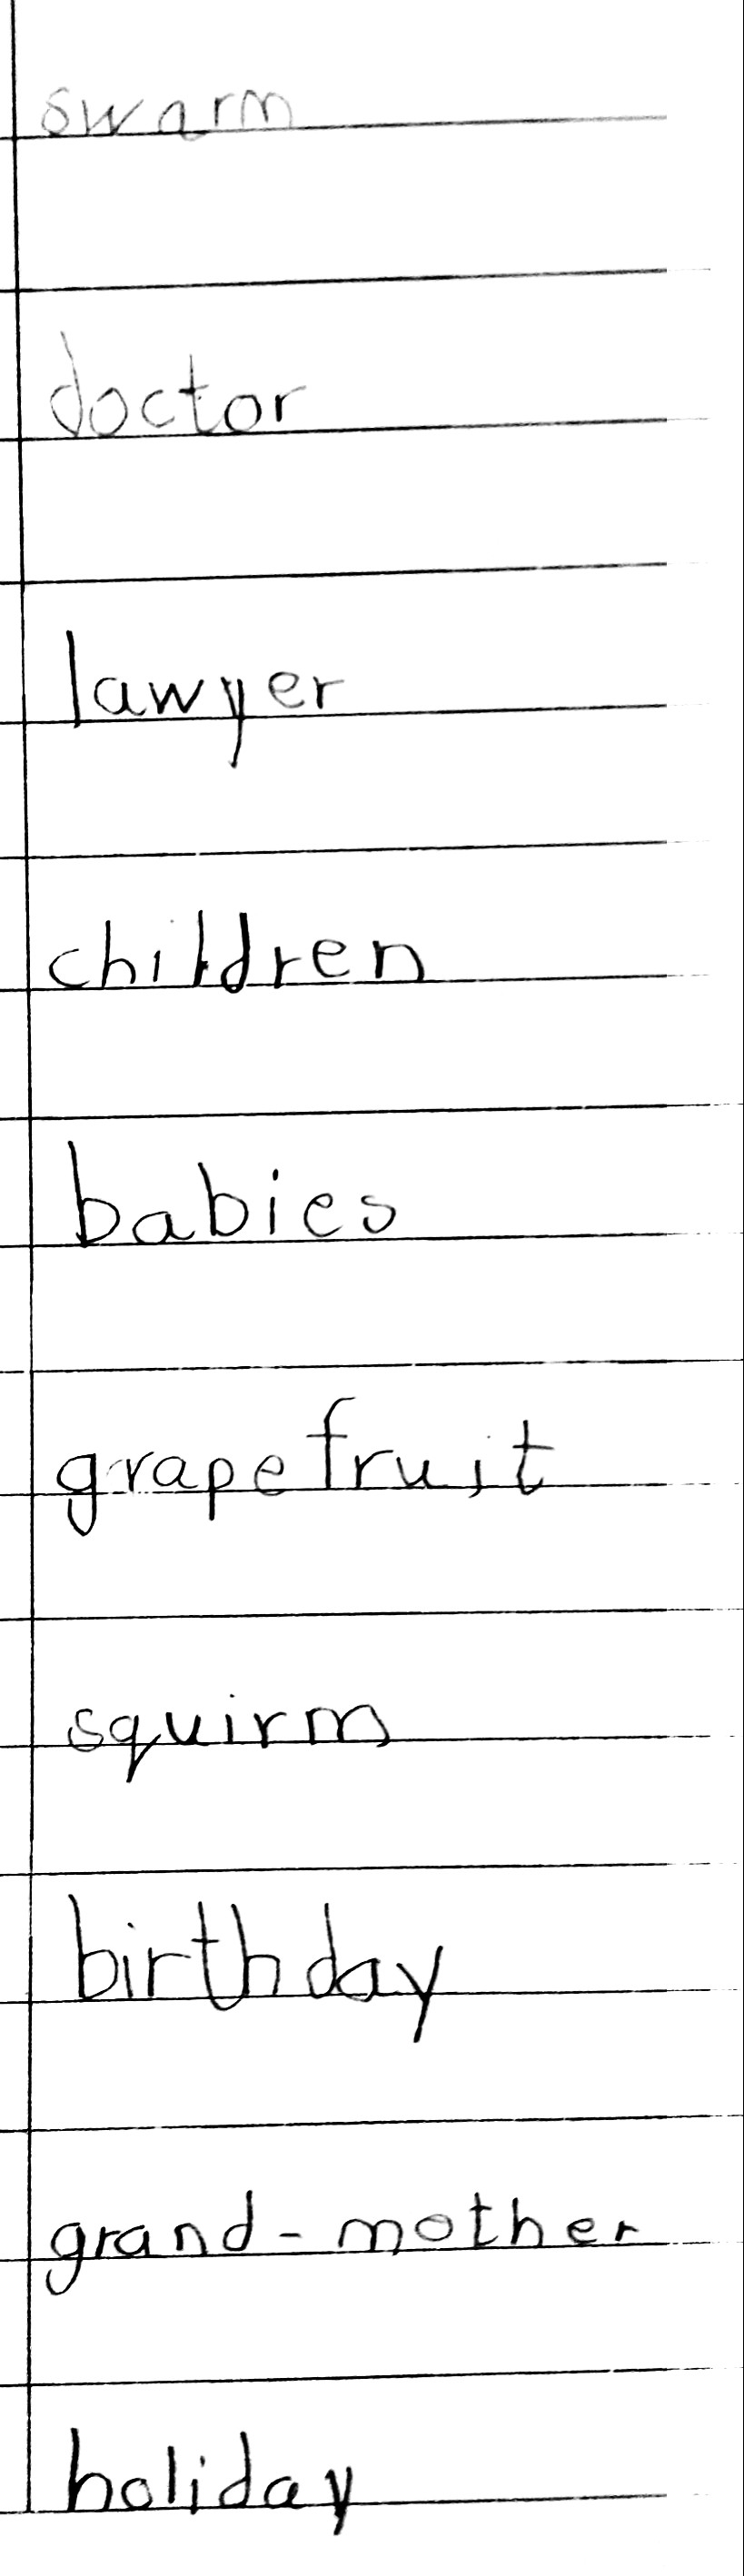 swarm
doctor
lawyer
children
babies
grapefruit
squirm
birthday
grand-mother
holiday